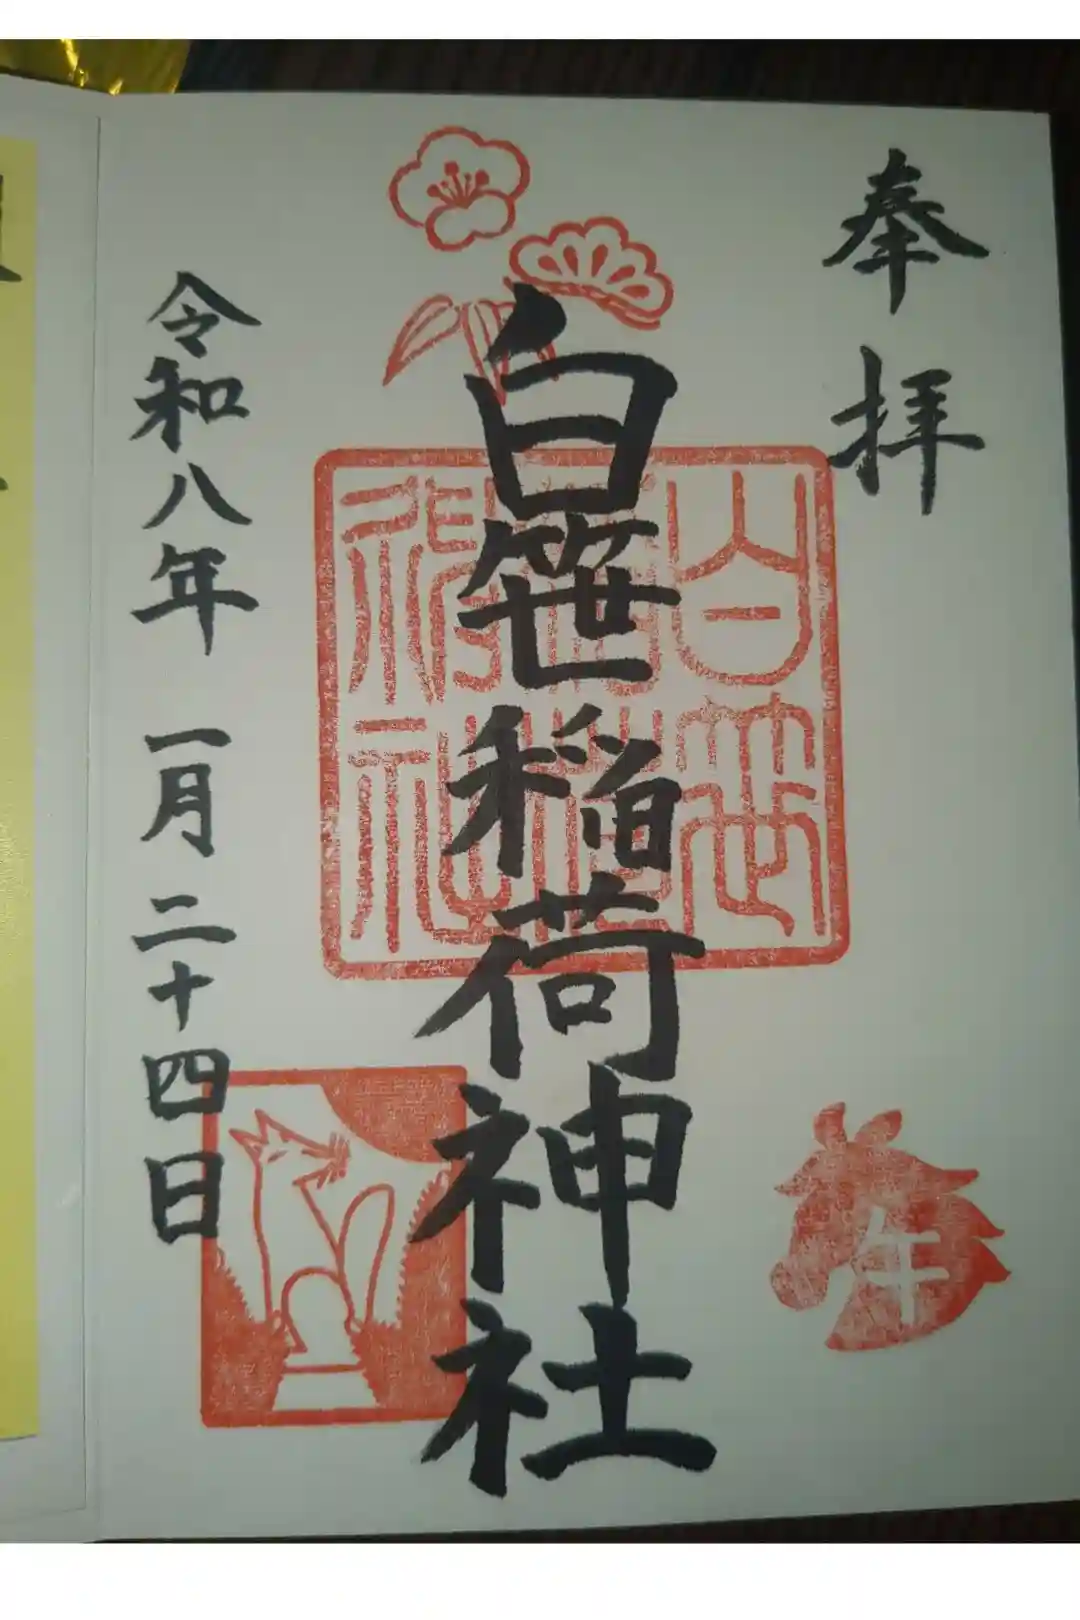 奉拝
白笹稲荷神社
白笹稲荷神社
午
令和八年 一月 二十四日